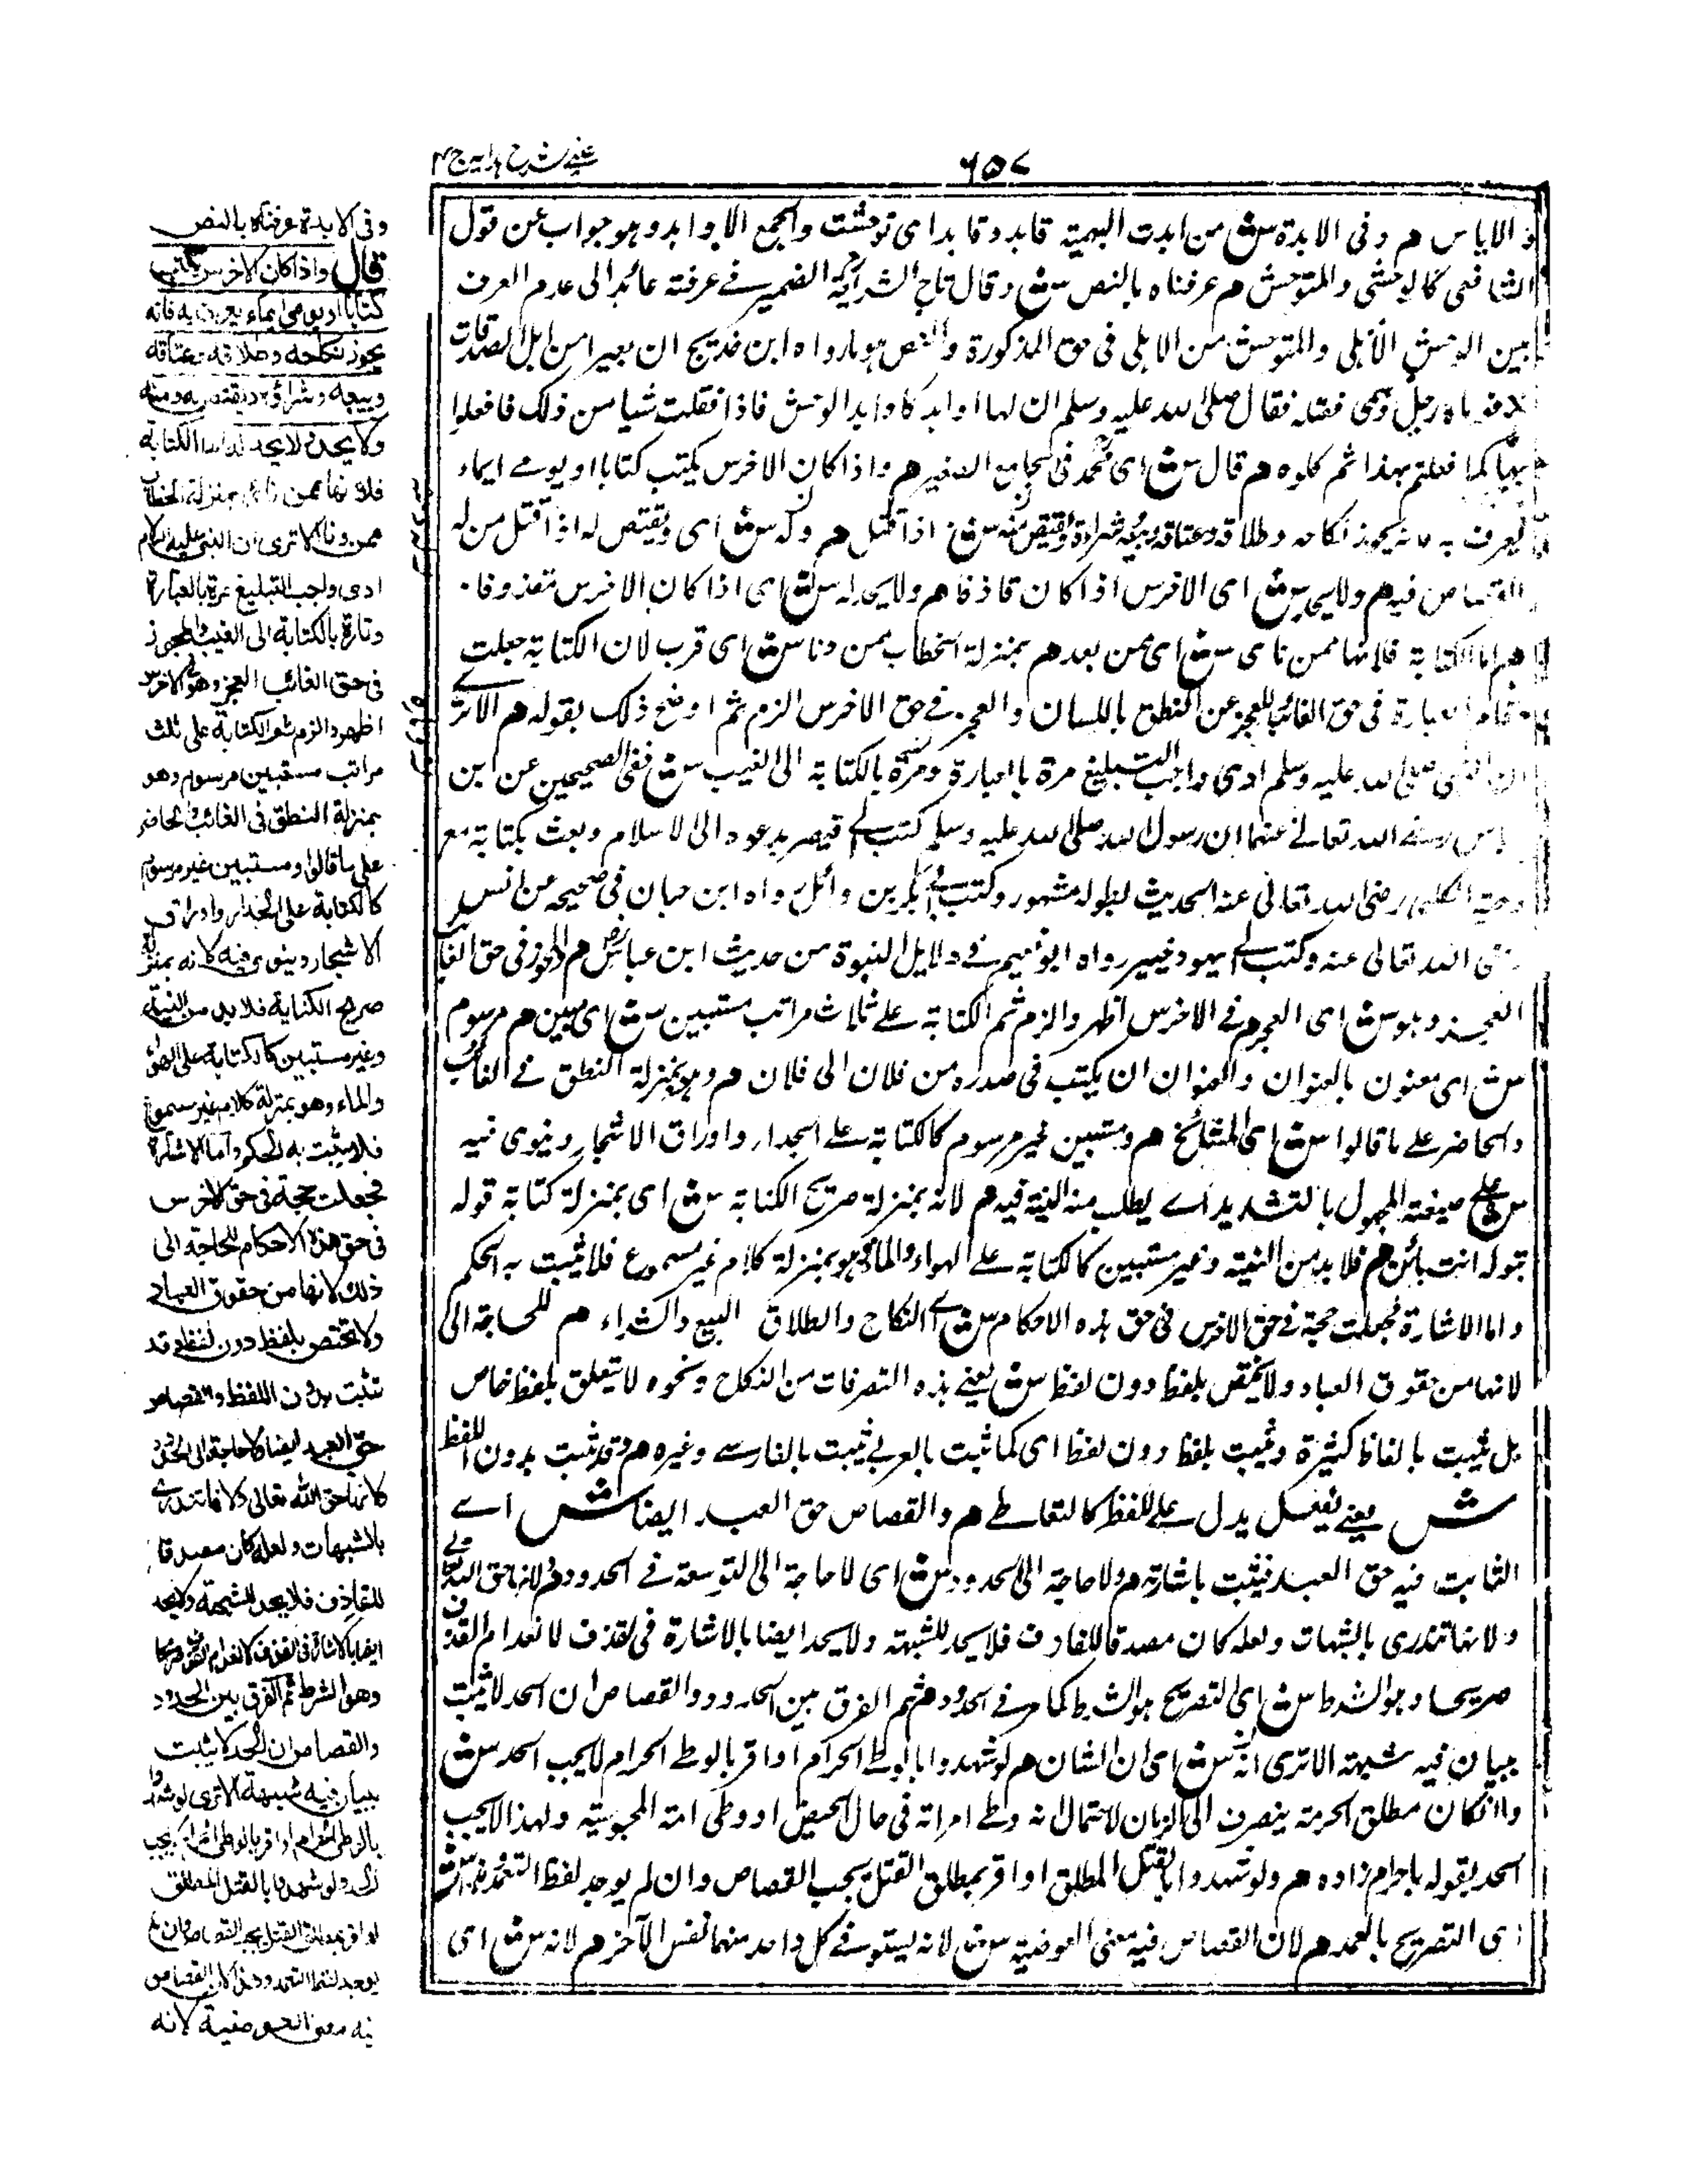 ۶۵۷
عینی شرح ہدایہ ج ۴
والایاس هم وفی الابدة ش من ابدت البهیمة تابد وتابد ای توحشت والجمع الاوابد وهو جواب عن قول
الشافعی کالوحشی والمتوحش هم عرفناه بالنص ش وقال تاج الشریعة الضمیر فی عرفته عائد الی عدم الفرق
بین الوحش الاهلی والمتوحش من الاهلی فی حق المذکورة والنص هو مارواه ابن خدیج ان بعیرا من ابل الصدقات
رجل وسمی فقتله فقال صلی الله علیه وسلم ان لها اوابد کاوابد الوحش فاذا فعلت شیا من ذلک فافعلوا
بها کما فعلتم بهذا ثم کلوه هم قال ش ای محمد فی الجامع الصغیر هم واذا کان الاخرس یکتب کتابا او یومی ایماء
یعرف به فانه یجوز نکاحه وطلاقه وعتاقه وبیعه وشراؤه ویقتص منه ش اذا قتل هم وله ش ای ویقتص له اذا قتل من له
القصاص فیه هم ولا یحد ش ای الاخرس اذا کان قاذفا هم ولا یحد له ش ای اذا کان الاخرس مقذوفا
هم اما الکتابة فلانها ممن نای ش ای ممن بعد هم بمنزلة الخطاب ممن دنا ش ای قرب لان الکتابة جعلت
العبارة فی حق الغائب للعجز عن النطق باللسان والعجز فی حق الاخرس الزم ثم اوضح ذلک بقوله هم الا تری
ان النبی صلی الله علیه وسلم ادی واجب التبلیغ مرة بالعبارة ومرة بالکتابة الی الغیب ش ففی الصحیحین عن ابن
عباس رضی الله تعالی عنهما ان رسول الله صلی الله علیه وسلم کتب الی قیصر یدعوه الی الاسلام وبعث بکتابة مع
دحیة الکلبی رضی الله تعالی عنه الحدیث بطوله مشهور وکتب الی بکر بن وائل رواه ابن حبان فی صحیحه عن انس
رضی الله تعالی عنه وکتب الی یهود خیبر رواه ابو نعیم فی دلایل النبوة من حدیث ابن عباس هم والمجوز فی حق الغائب
العجز وهو ش ای العجز هم فی الاخرس اظهر والزم ثم الکتابة علی ثلاث مراتب مستبین ش ای مبین هم مرسوم
ش ای معنون بالعنوان والعنوان ان یکتب فی صدره من فلان الی فلان هم وهو بمنزلة النطق فی الغائب
والحاضر علی ما قالوا ش ای المشائخ هم ومستبین غیر مرسوم کالکتابة علی الجدار واوراق الاشجار وینوی فیه
ش علی صیغة المجهول بالتشدید ای یطلب منه النیة فیه هم لانه بمنزلة صریح الکنایة ش ای بمنزلة کنایة قوله
بقوله انت بائن هم فلا بد من النیة وغیر مستبین کالکتابة علی الهواء والماء وهو بمنزلة کلام غیر مسموع فلا یثبت به الحکم
واما الاشارة فجعلت حجة فی حق الاخرس فی حق هذه الاحکام ش ای النکاح والطلاق البیع والشراء هم للحاجة الی
لانها من حقوق العباد ولا یختص بلفظ دون لفظ ش یعنی هذه التصرفات من النکاح ونحوه لا یتعلق بلفظ خاص
بل یثبت بالفاظ کثیرة ویثبت بلفظ دون لفظ ای کما ثبت بالعربی یثبت بالفارسی وغیره هم وقد یثبت بدون اللفظ
ش یعنی بفعل یدل علی اللفظ کالتعاطی هم والقصاص حق العبد ایضا ش ای
الثابت فیه حق العبد فیثبت باشارته هم ولا حاجة الی الحدود ش ای لا حاجة الی التوسعة فی الحدود هم لانها حق الله تعالی
ولانها تندری بالشبهات ولعله کان مصدقا للقاذف فلا یحد للشبهة ولا یحد ایضا بالاشارة فی القذف لانعدام القذف
صریحا وهو الشرط ش ای التصریح هو الشرط کما مر فی الحدود هم ثم الفرق بین الحدود والقصاص ان الحد لا یثبت
ببیان فیه شبهة الا تری انه ش ای ان الشان هم لو شهدوا بالوطی الحرام او اقر بالوطی الحرام لا یجب الحد ش
وان کان مطلق الحرمة ینصرف الی الزنا لاحتمال انه وطی امراته فی حال الحیض او وطی امته المجوسیة ولهذا لا یجب
الحد بقوله یا حرام زاده هم ولو شهدوا بالقتل المطلق او اقر بمطلق القتل یجب القصاص وان لم یوجد لفظ التعمد ش
ای التصریح بالعمد هم لان القصاص فیه معنی العوضیة ش لانه یستوفی کل واحد منهما نفس الآخر هم لانه ش ای
وفی الابدة عرفناه بالنص
قال واذا کان الاخرس یکتب
کتابا او یومی ایماء یعرف به فانه
یجوز نکاحه وطلاقه وعتاقه
وبیعه وشراؤه ویقتص له ومنه
ولا یحد ولا یحد له اما الکتابة
فلانها ممن نای بمنزلة الخطاب
ممن دنا الا تری ان النبی علیه السلام
ادی واجب التبلیغ مرة بالعبارة
وتارة بالکتابة الی الغیب والمجوز
فی حق الغائب العجز وهو فی الاخرس
اظهر والزم ثم الکتابة علی ثلث
مراتب مستبین مرسوم وهو
بمنزلة النطق فی الغائب والحاضر
علی ما قالوا ومستبین غیر مرسوم
کالکتابة علی الجدار واوراق
الاشجار وینوی فیه لانه بمنزلة
صریح الکنایة فلا بد من النیة
وغیر مستبین کالکتابة علی الهواء
والماء وهو بمنزلة کلام غیر مسموع
فلا یثبت به الحکم واما الاشارة
فجعلت حجة فی حق الاخرس
فی حق هذه الاحکام للحاجة الی
ذلک لانها من حقوق العباد
ولا تختص بلفظ دون لفظ وقد
تثبت بدون اللفظ والقصاص
حق العبد ایضا ولا حاجة الی الحدود
لانها حق الله تعالی ولانها تندری
بالشبهات ولعله کان مصدقا
للقاذف فلا یحد للشبهة ولا یحد
ایضا بالاشارة فی القذف لانعدام القذف صریحا
وهو الشرط ثم الفرق بین الحدود
والقصاص ان الحد لا یثبت
ببیان فیه شبهة الا تری لو شهدوا
بالوطی الحرام او اقر بالوطی الحرام لا یجب
الحد ولو شهدوا بالقتل المطلق
او اقر بمطلق القتل یجب القصاص وان لم
یوجد لفظ التعمد وهذا لان القصاص
فیه معنی العوضیة لانه